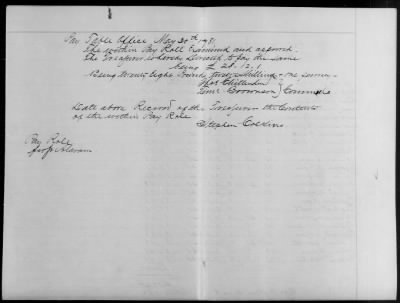 Pay Table Office May 30th 1781
the within Pay Roll Examined and approved.
the Treasurer is hereby Directed to pay the same
being £ 28. 2. 1
Being twenty Eight Pounds two Shillings & one
Thos Chittenden
Timo Brownson } Committee
Date above Received of the Treasurer the Contents
of the within Pay Role
Stephen Collins
Pay Roll